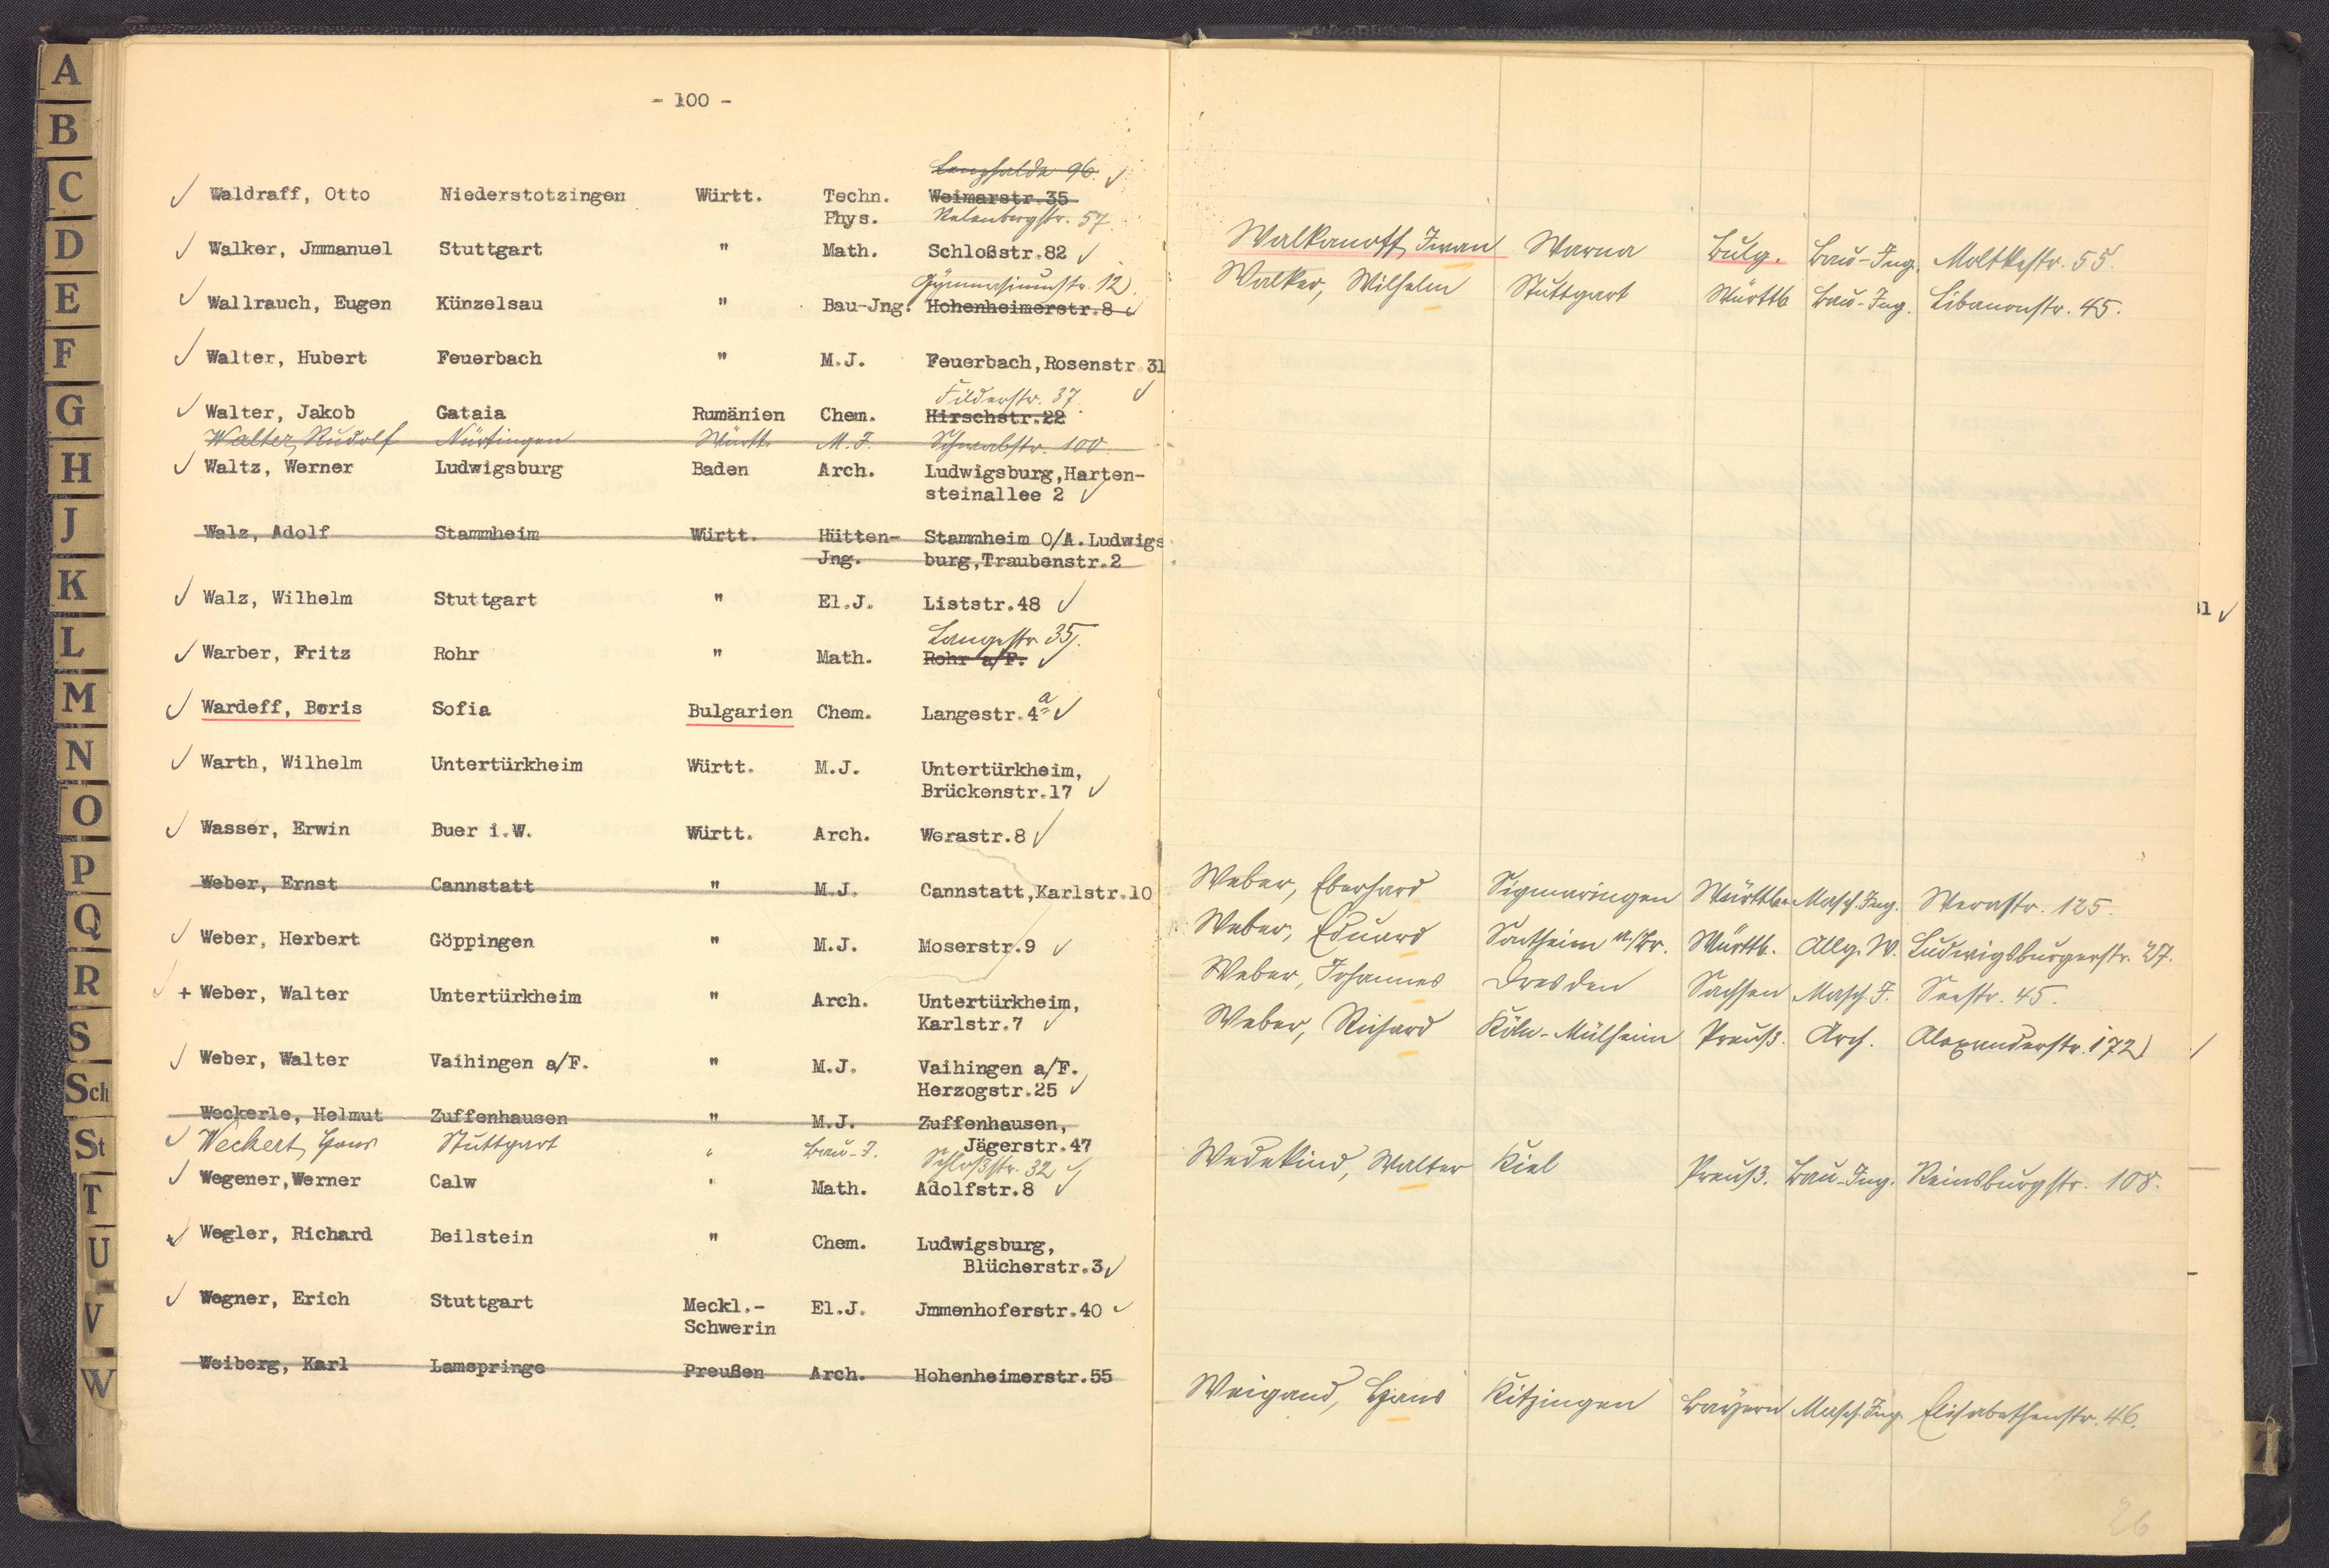 A
B
C
D
E
F
G
H
J
K
L
M
N
O
P
Q
R
S
Sch
St
T
U
V
W
- 100 -
Lenzhalde 96.
Waldraff, Otto Niederstotzingen Württ. Techn. Weimarstr.35
Phys. Relenbergstr. 57.
Walker, Jmmanuel Stuttgart " Math. Schloßstr.82
Gymnasiumstr. 12
Wallrauch, Eugen Künzelsau " Bau-Jng. Hohenheimerstr.8
Walter, Hubert Feuerbach " M.J. Feuerbach,Rosenstr.31
Filderstr. 37.
Walter, Jakob Gataia Rumänien Chem. Hirschstr.22
Walter, Rudolf Nürtingen Württ. M. J. Schwabstr. 100.
Waltz, Werner Ludwigsburg Baden Arch. Ludwigsburg,Harten-
steinallee 2
Walz, Adolf Stammheim Württ. Hütten- Stammheim O/A.Ludwigs
Jng. burg,Traubenstr.2
Walz, Wilhelm Stuttgart " El.J. Liststr.48
Langestr. 35.
Warber, Fritz Rohr " Math. Rohr a/F.
Wardeff, Boris Sofia Bulgarien Chem. Langestr.4a
Warth, Wilhelm Untertürkheim Württ. M.J. Untertürkheim,
Brückenstr.17
Wasser, Erwin Buer i.W. Württ. Arch. Werastr.8
Weber, Ernst Cannstatt " M.J. Cannstatt,Karlstr.10
Weber, Herbert Göppingen " M.J. Moserstr.9
+ Weber, Walter Untertürkheim " Arch. Untertürkheim,
Karlstr.7
Weber, Walter Vaihingen a/F. " M.J. Vaihingen a/F.
Herzogstr.25
Weckerle, Helmut Zuffenhausen " M.J. Zuffenhausen,
Jägerstr.47
Weckert, Hans Stuttgart " Bau-J. Schloßstr. 32
Wegener,Werner Calw " Math. Adolfstr.8
Wegler, Richard Beilstein " Chem. Ludwigsburg,
Blücherstr.3
Wegner, Erich Stuttgart Meckl.- El.J. Jmmenhoferstr.40
Schwerin
Weiberg, Karl Lamspringe Preußen Arch. Hohenheimerstr.55
Walkanoff, Iwan Warna Bulg. Bau-Ing. Moltkestr. 55.
Walker, Wilhelm Stuttgart Württb Bau-Ing. Libanonstr. 45.
31
Weber, Eberhard Sigmaringen Württb. Masch.Ing. Werastr. 125.
Weber, Eduard Sontheim a/Br. Württb. Allg. W. Ludwigsburgerstr. 27.
Weber, Johannes Dresden Sachsen Masch. J. Seestr. 45.
Weber, Richard Köln-Mülheim Preuß. Arch. Alexanderstr. 172
Wedekind, Walter Kiel Preuß. Bau-Ing. Reinsburgstr. 108.
Weigand, Hans Kitzingen Bayern Masch.Ing. Elisabethenstr. 46.
26
Z